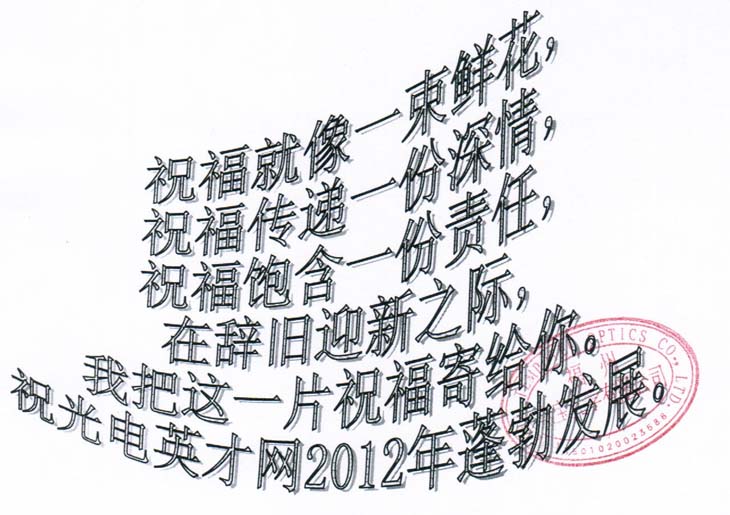 祝福就像一束鲜花,
祝福传递一份深情,
祝福饱含一份责任,
在辞旧迎新之际,
我把这一片祝福寄给你。
祝光电英才网2012年蓬勃发展。
OPTICS CO., LTD.